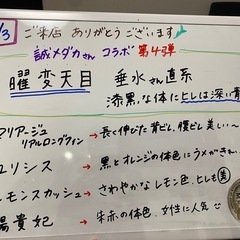 /3
ご来店 ありがとう ございます
誠メダカさん コラボ 第4弾
曜変天目 垂水さん直系
漆黒な体にヒレは深い青
マリアージュ
リアルロングフィン → 長く伸びた背ビレ、腹ビレ 美しい〜
ユリシス → 黒とオレンジの体色にラメがきれ
レモンスカッシュ → さわやかなレモン色、ヒレも美
楊貴妃 → 朱赤の体色、女性に人気